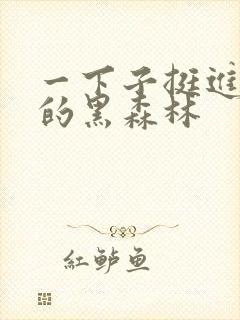 一下子挺進
的黑森林
紅鲈魚